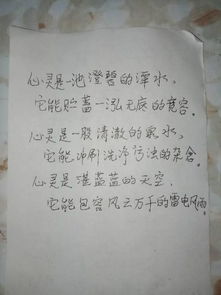 心灵是一池澄碧的潭水,
它能贮蓄一泓无底的宽容。
心灵是一股清澈的泉水,
它能冲刷洗净污浊的杂念。
心灵是湛蓝蓝的天空,
它能包容风云万千的雷电风雨。